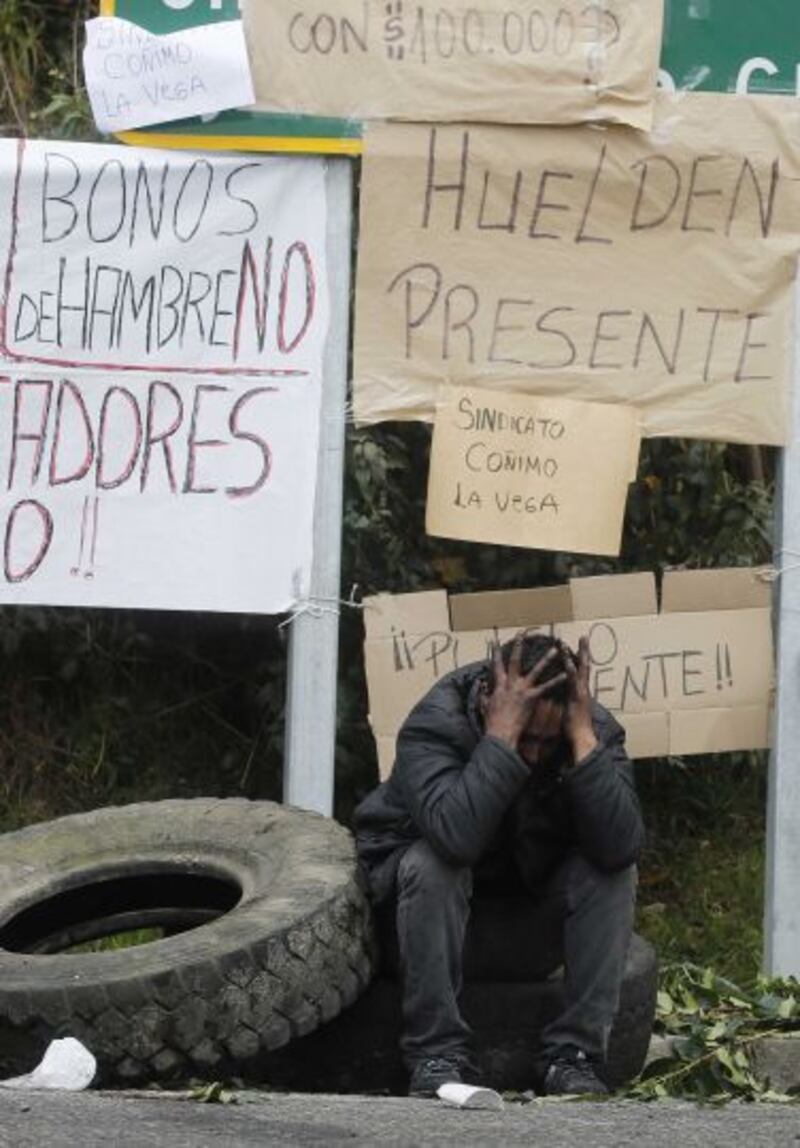 SINDICATO
COÑIMO
LA VEGA
CON $100.000?
BONOS
DE HAMBRE NO
ADORES
O!!
HUELDEN
PRESENTE
SINDICATO
COÑIMO
LA VEGA
¡¡PU
O
ENTE!!